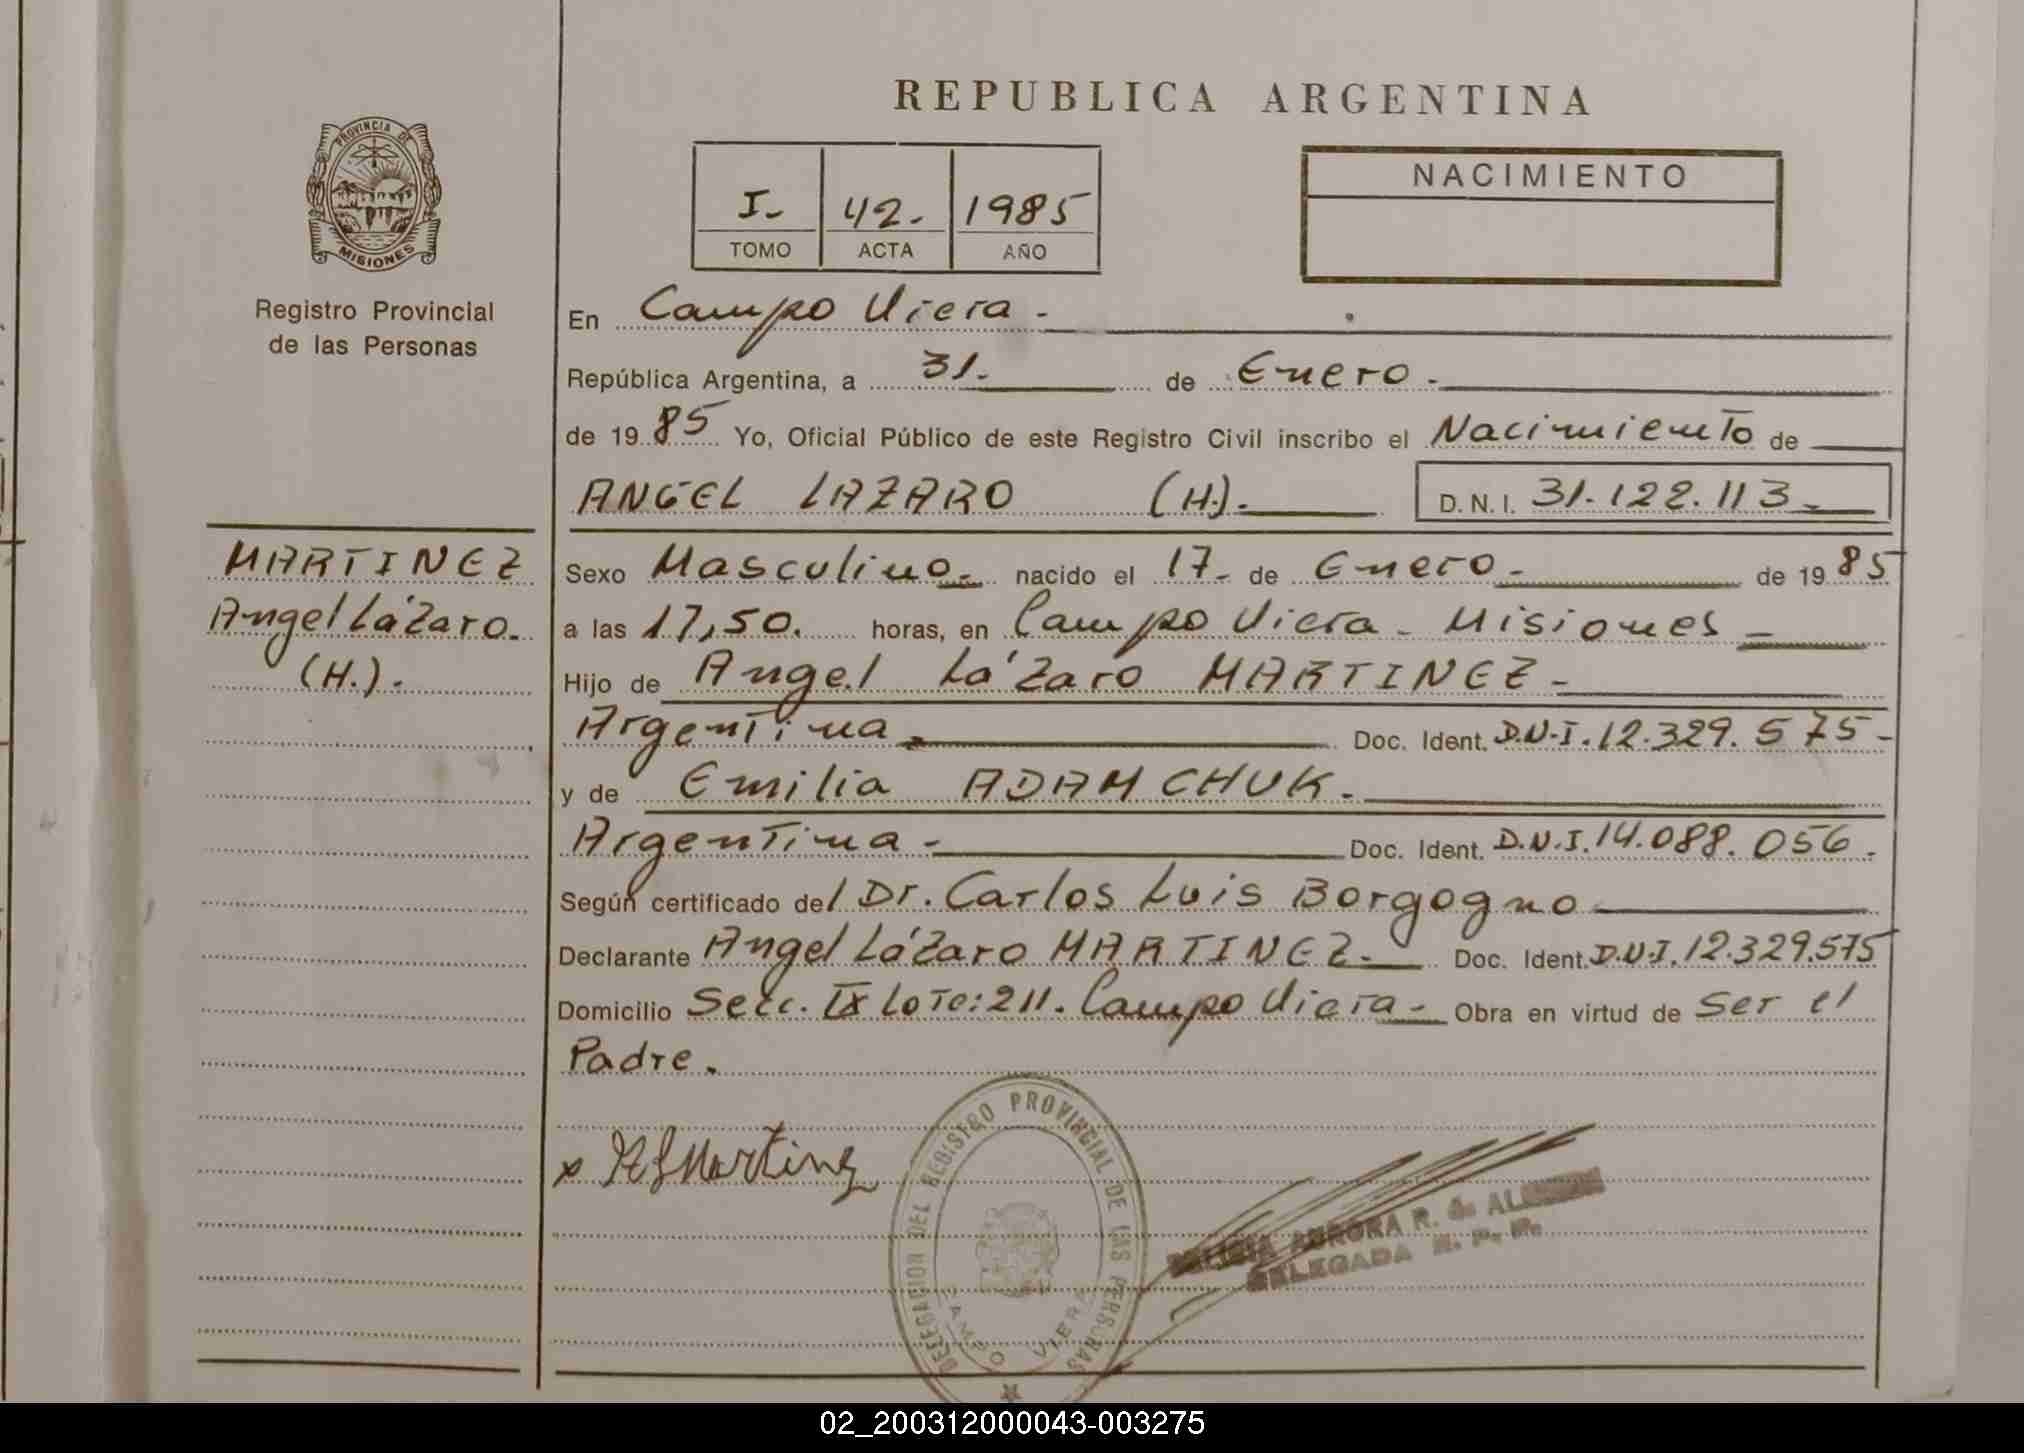 REPUBLICA ARGENTINA
PROVINCIA DE MISIONES
Registro Provincial
de las Personas
I- 42- 1985
TOMO ACTA AÑO
NACIMIENTO
En Campo Viera -
República Argentina, a 31. de Enero -
de 19 85 Yo, Oficial Público de este Registro Civil inscribo el Nacimiento de
ANGEL LAZARO (H.) D.N.I. 31.122.113-
MARTINEZ
Angel Lázaro.
(H.).
Sexo Masculino- nacido el 17- de Enero - de 19 85
a las 17,50. horas, en Campo Viera - Misiones -
Hijo de Angel Lázaro MARTINEZ -
Argentina Doc. Ident. D.N.I. 12.329.575-
y de Emilia ADAMCHUK.
Argentina - Doc. Ident. D.N.I. 14.088.056.
Según certificado del Dr. Carlos Luis Borgogno
Declarante Angel Lázaro MARTINEZ.- Doc. Ident. D.N.I. 12.329.575
Domicilio Secc. IX Lote: 211. Campo Viera - Obra en virtud de Ser el
Padre.
x Martinez
DELEGACION DEL REGISTRO PROVINCIAL DE LAS PERSONAS
CAMPO VIERA
AURORA R. de
DELEGADA R. P. P.
02_200312000043-003275